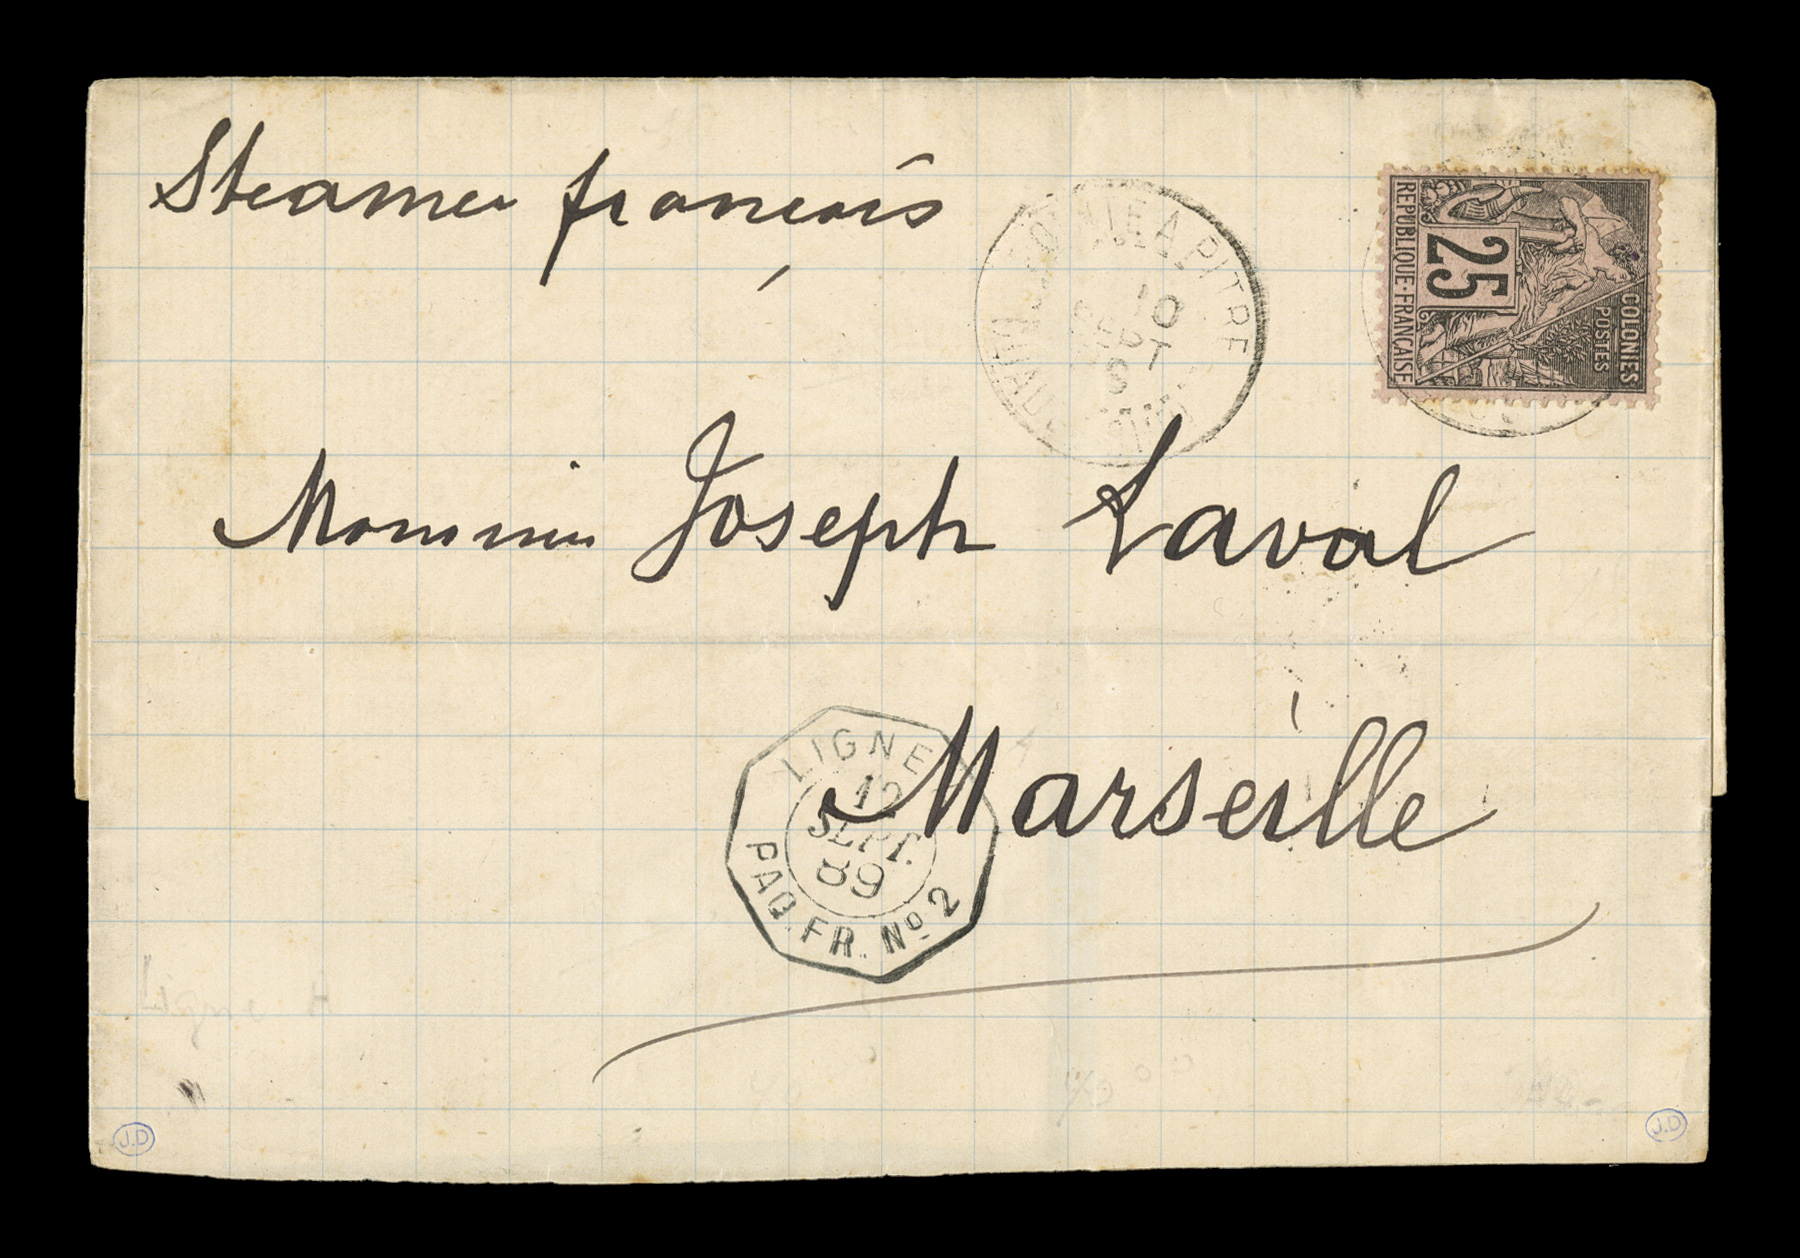 Steamer français
POINTE A PITRE
10
SEPT
COLONIES
POSTES
25
REPUBLIQUE·FRANCAISE
Monsieur Joseph Laval
Marseille
LIGNE
12
SEPT.
89
PAQ. FR. Nº 2
Ligne H
J.D
J.D